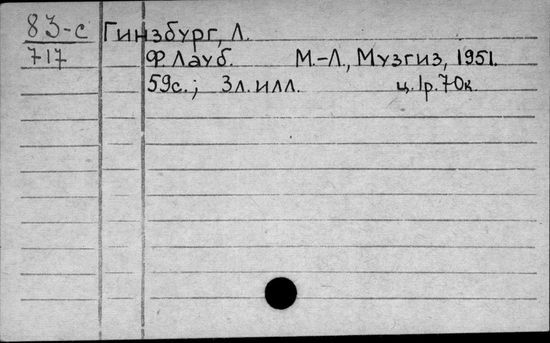 83-с Гинзбург, Л.
717 Ф Лауб. М.-Л., Музгиз, 1951.
59с.; 3л. илл. ц. 1р. 70к.